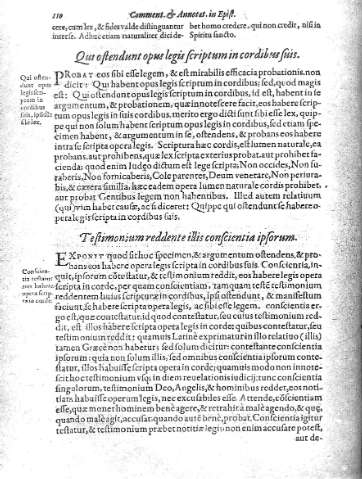 110 Comment. & Annotat. in Epist.
cere, cum lex, & fides valde distinguantur
interest. Adhuc etiam naturaliter dici de-
bet homo credere, qui non credit, nisi in
Spiritu sancto.
Qui ostendunt opus legis scriptum in cordibus suis.
Qui osten-
dunt opus
legis scri-
ptum in
cordibus
suis, ipsisibi
esse lex.
PROBAT eos sibi esse legem, & est mirabilis efficacia probationis. non
dicit: Qui habent opus legis scriptum in cordibus: sed, quod magis
est: Qui ostendunt opus legis scriptum in cordibus, id est, habent in se
argumentum, & probationem, quæ innotescere facit, eos habere scrip-
tum opus legis in suis cordibus. merito ergo dicit: sunt sibi esse lex, quip-
pe qui non solum habent scriptum opus legis in cordibus, sed etiam speci-
men habent, & argumentum in se, ostendens, & probans eos habere
intra se scripta opera legis. Scriptura hæc cordis, est lumen naturale, ea
probans, aut prohibens, quæ lex scripta exterius probat, aut prohibet fa-
cienda: quod enim Iudæo dictum est lege scripta, Non occides, Non fu-
raberis, Non fornicaberis, Cole parentes, Deum venerare, Non periura-
bis, & cætera similia. hæc eadem opera lumen naturale cordis prohibet,
aut probat Gentibus legem non habentibus. Illud autem relatiuum
(qui) vim habet causæ, ac si diceret: Quippe qui ostendunt se habere o-
pera legis scripta in cordibus suis.
Testimonium reddente illis conscientia ipsorum.
Conscien-
tia testatur
eos habere
opera scrip-
ta in corde.
EXPONIT quod sit hoc specimen, & argumentum ostendens, & pro-
bans eos habere opera legis scripta in cordibus suis. Conscientia, in-
quit, ipsorum cōtestatur, & testimonium reddit, eos habere legis opera
scripta in corde, per quam conscientiam, tamquam testē testimonium
reddentem huius scripturæ in cordibus, ipsi ostendunt, & manifestum
faciunt, se habere scripta opera legis, ac sibi esse legem. conscientia er-
go est, quæ contestatur. id quod contestatur, seu cuius testimonium red-
dit, est illos habere scripta opera legis in corde: quibus contestatur, seu
testimonium reddit: quamuis Latinè exprimatur in illo relatiuo (illis)
tamen Græcè non habetur: sed solum dicitur: contestante conscientia
ipsorum: quia non solum illis, sed omnibus conscientia ipsorum conte-
statur, illos habuisse scripta opera in corde: quamuis modo non innote-
scit hoc testimonium vsq; in diem reuelationis iudicij: tunc conscientia
singulorum, testimonium Deo, Angelis, & hominibus reddet, eos noti-
tiam habuisse operum legis, nec excusabiles esse. Attende, cōscientiam
esse, quæ monet hominem benè agere, & retrahit à malè agendo, & quę,
quando malè agit, accusat: quando autē benè, probat. Conscientia igitur
testatur, & testimonium præbet notitiæ legis: non enim accusare potest,
aut de-